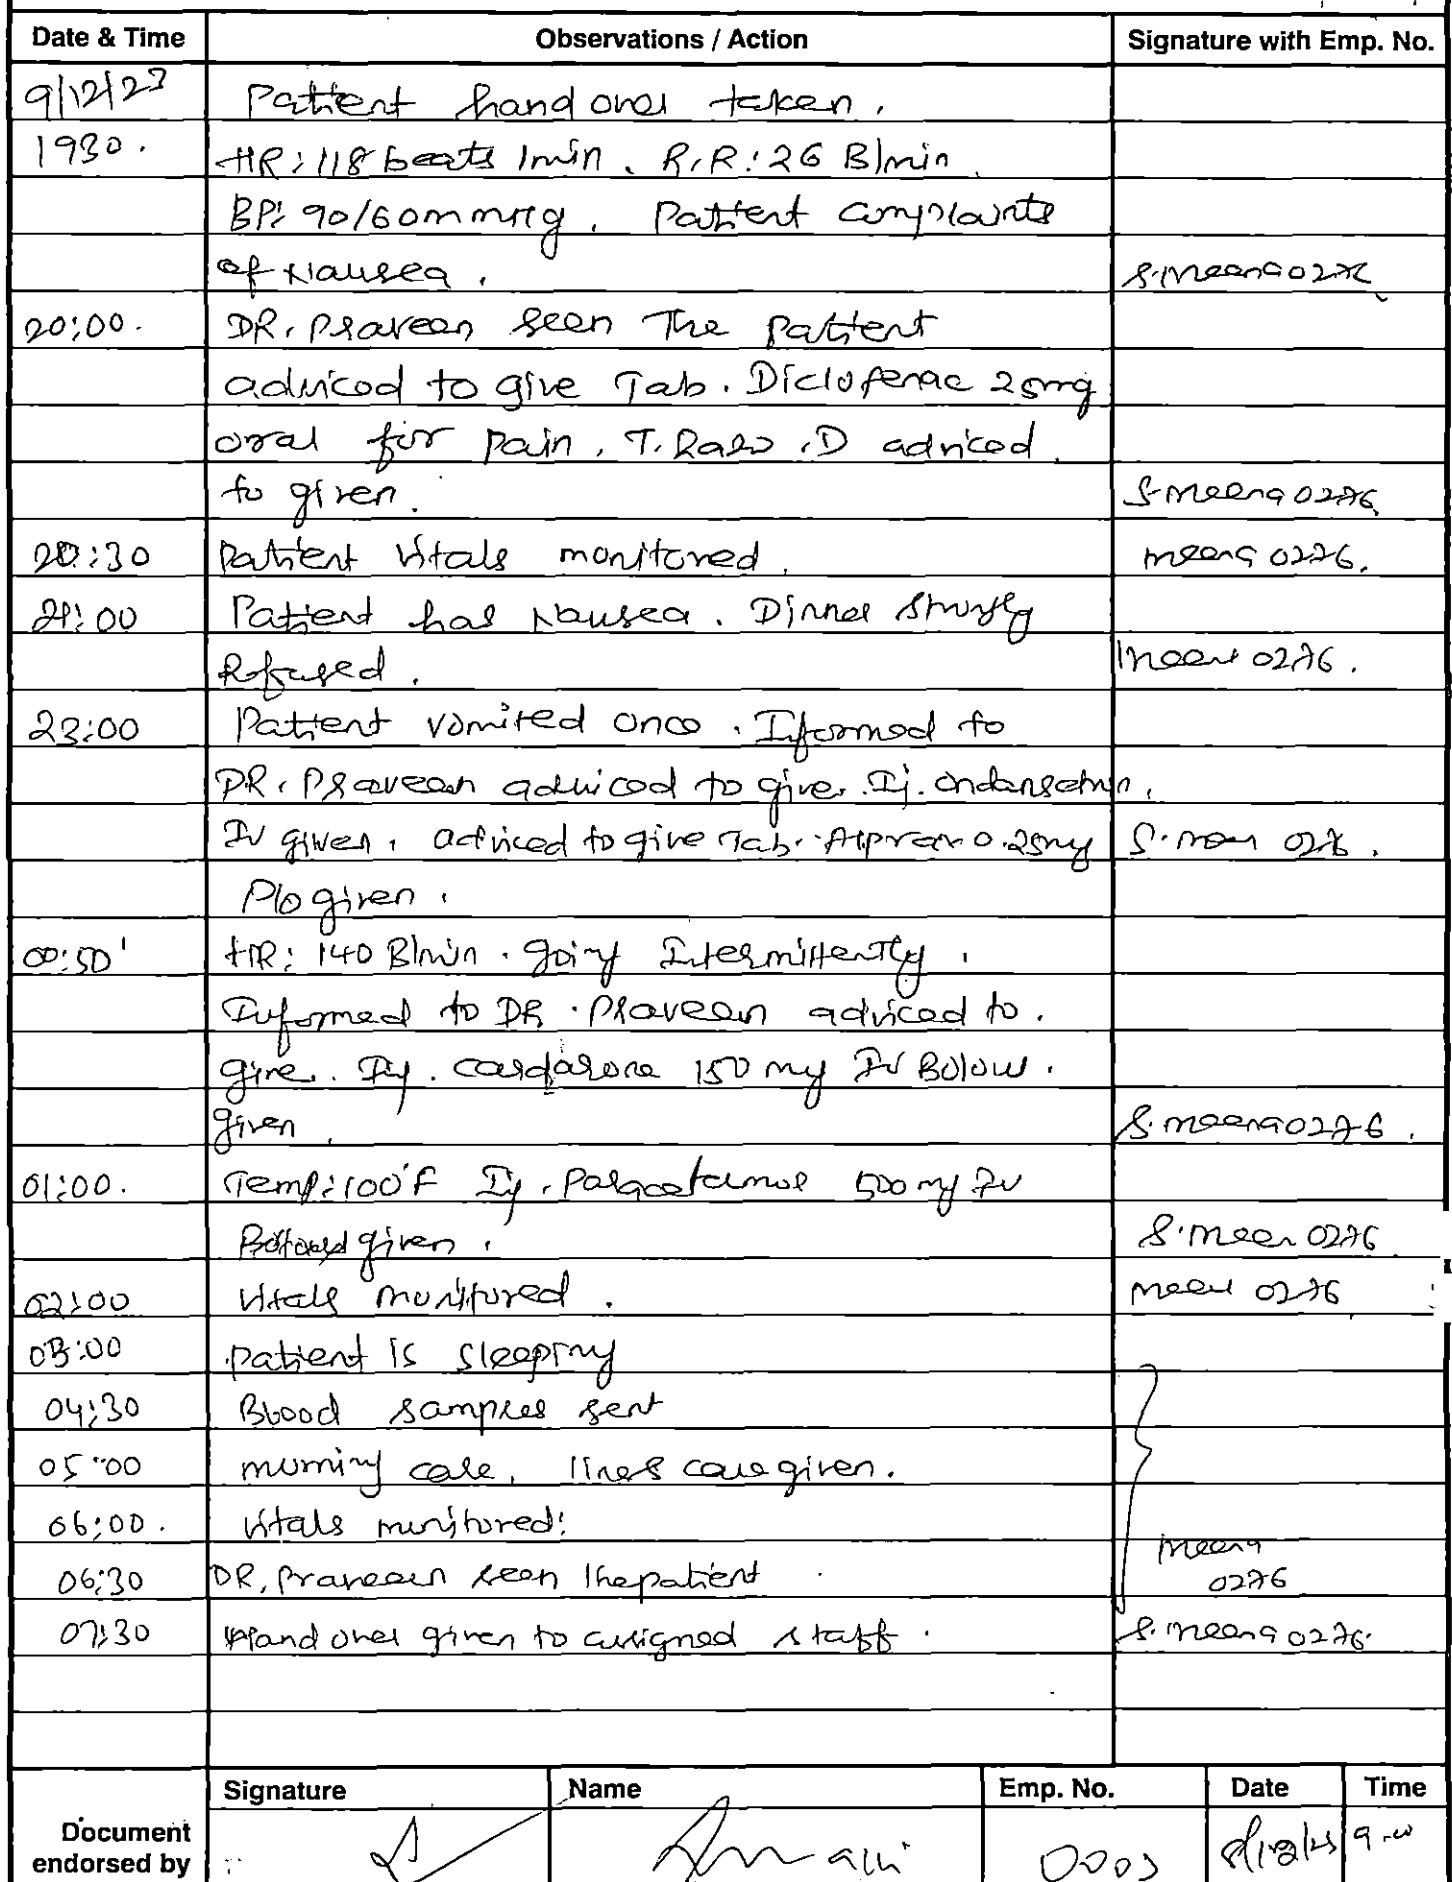 Date & Time Observations / Action Signature with Emp. No.
9/12/23 Patient hand over taken.
1930. HR: 118 beats 1min. R.R: 26 B/min
BP: 90/60mmHg. Patient complaints
of Nausea. S.Meena 0276
20:00. DR. Praveen seen The patient
adviced to give Tab. Diclofenac 25mg
oral for pain. T. Razo .D adviced
to given. S.meena 0276
20:30 Patient vitals monitored. meena 0276.
21:00 Patient has Nausea. Dinner strongly
Refused. meena 0276.
23:00 Patient vomited once. Iformed to
DR. Praveen adviced to give. Ij. ondansetron.
IV given. adviced to give Tab. Alprax 0.25mg S. meena 0276.
P/o given.
00:50 HR: 140 B/min. going Intermittently.
Informed to DR. Praveen adviced to.
give. Inj. cardarone 150 mg IV Bolow.
given. S. meena 0276.
01:00. Temp: 100°F Inj. Paracetamol 500 mg IV
given. S. meena 0276
02:00 Vitals monitored. meena 0276
03:00 patient is sleeping
04:30 Blood samples sent
05:00 morning care, lines care given.
06:00. Vitals monitored.
06:30 DR. Praveen seen the patient meena
0276
07:30 Hand over given to assigned staff. S. meena 0276.
Signature Name Emp. No. Date Time
Document
endorsed by 0003